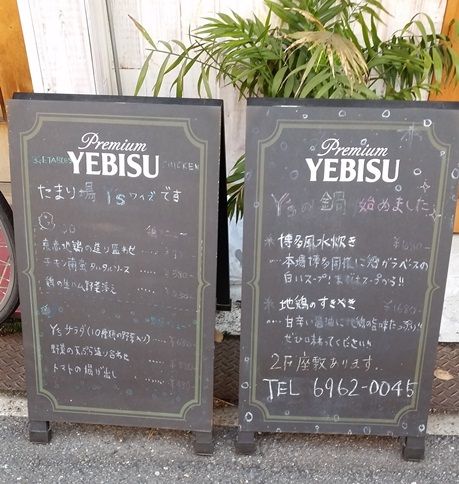 Premium
YEBISU
VEGETABLE CHICKEN
たまり場 Y'sワイズです
地鶏の造り盛わせ
チキン南蛮タルタルソース
鶏の生ハム野菜添え
Y'sサラダ(10種類の野菜入り)
野菜の天ぷら盛り合わせ
トマトの揚げ出し
Premium
YEBISU
Y'sの鍋 始めました
※博多風水炊き
本場博多同様に鶏ガラベースの
白いスープ!
※地鶏のすきやき ¥1680-
甘辛い醤油に地鶏の旨味たっぷり!!
ぜひ味わってください!!
2F座敷あります.
TEL 6962-0045